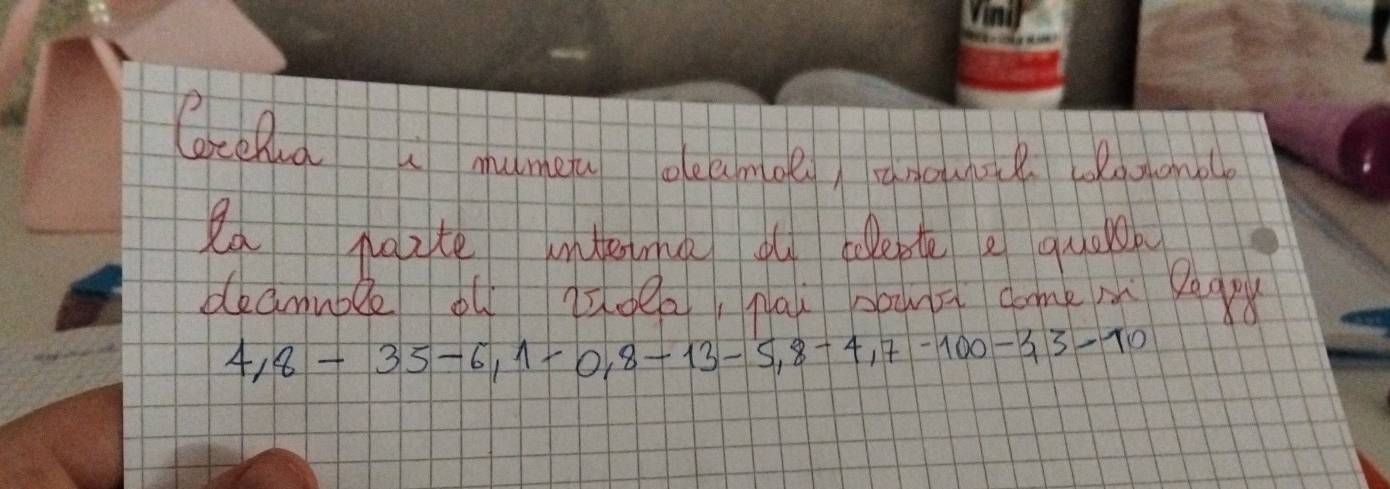 Vinil
Cerchia i numeri decimali, riscrivili colorando
la parte interna di celeste e quella
decimale di viola, poi scrivi come si legge
4,8 - 35 - 6,1 - 0,8 - 13 - 5,8 - 4,7 - 100 - 3,3 - 10